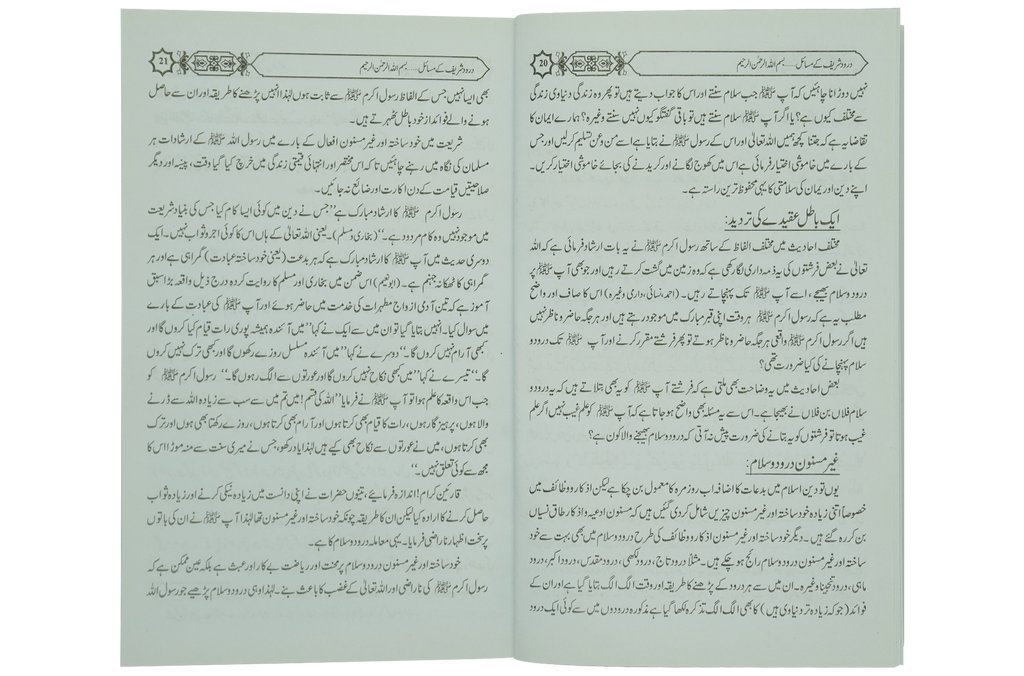 20
درود شریف کے مسائل.....بسم اللہ الرحمٰن الرحیم
نہیں دوڑانا چاہئیں کہ آپ ﷺ جب سلام سنتے اور اس کا جواب دیتے ہیں تو پھر وہ زندگی دنیاوی زندگی
سے مختلف کیوں ہے؟ یا اگر آپ ﷺ سلام سنتے ہیں تو باقی گفتگو کیوں نہیں سنتے وغیرہ؟ ہمارے ایمان کا
تقاضا یہ ہے کہ جتنا کچھ ہمیں اللہ تعالیٰ اور اس کے رسول ﷺ نے بتایا ہے اسے من وعن تسلیم کرلیں اور جس
کے بارے میں خاموشی اختیار فرمائی ہے اس میں کھوج لگانے اور کریدنے کی بجائے خاموشی اختیار کریں۔
اپنے دین اور ایمان کی سلامتی کا یہی محفوظ ترین راستہ ہے۔
ایک باطل عقیدے کی تردید:
مختلف احادیث میں مختلف الفاظ کے ساتھ رسول اکرم ﷺ نے یہ بات ارشاد فرمائی ہے کہ اللہ
تعالیٰ نے بعض فرشتوں کی یہ ذمہ داری لگا رکھی ہے کہ وہ زمین میں گشت کرتے رہیں اور جو بھی آپ ﷺ پر
درود وسلام بھیجے، اسے آپ ﷺ تک پہنچاتے رہیں۔ (احمد، نسائی، دارمی وغیرہ) اس کا صاف اور واضح
مطلب یہ ہے کہ رسول اکرم ﷺ ہر وقت اپنی قبر مبارک میں موجود رہتے ہیں اور ہر جگہ حاضر و ناظر نہیں
ہیں اگر رسول اکرم ﷺ واقعی ہر جگہ حاضر و ناظر ہوتے تو پھر فرشتے مقرر کرنے اور آپ ﷺ تک درود و
سلام پہنچانے کی کیا ضرورت تھی؟
بعض احادیث میں یہ وضاحت بھی ملتی ہے کہ فرشتے آپ ﷺ کو یہ بھی بتلاتے ہیں کہ یہ درود و
سلام فلاں بن فلاں نے بھیجا ہے۔ اس سے یہ مسئلہ بھی واضح ہو جاتا ہے کہ آپ ﷺ کو علم غیب نہیں اگر علم
غیب ہوتا تو فرشتوں کو یہ بتانے کی ضرورت پیش نہ آتی کہ درود وسلام بھیجنے والا کون ہے؟
غیر مسنون درود وسلام:
یوں تو دین اسلام میں بدعات کا اضافہ اب روزمرہ کا معمول بن چکا ہے لیکن اذکار ووظائف میں
خصوصاً اتنی زیادہ خود ساختہ اور غیر مسنون چیزیں شامل کردی گئیں ہیں کہ مسنون ادعیہ واذکار طاق نسیاں
بن کر رہ گئے ہیں۔ دیگر خود ساختہ اور غیر مسنون اذکار ووظائف کی طرح درود وسلام میں بھی بہت سے خود
ساختہ اور غیر مسنون درود وسلام رائج ہوچکے ہیں۔ مثلاً درود تاج، درود لکھی، درود مقدس، درود اکبر، درود
ماہی، درود تنجینا وغیرہ۔ ان میں سے ہر درود کے پڑھنے کا طریقہ اور وقت الگ الگ بتایا گیا ہے اور ان کے
فوائد (جو کہ زیادہ تر دنیاوی ہیں) کا بھی الگ الگ تذکرہ لکھا گیا ہے مذکورہ درودوں میں سے کوئی ایک درود
21
درود شریف کے مسائل.....بسم اللہ الرحمٰن الرحیم
بھی ایسا نہیں جس کے الفاظ رسول اکرم ﷺ سے ثابت ہوں لہٰذا انہیں پڑھنے کا طریقہ اور ان سے حاصل
ہونے والے فوائد از خود باطل ٹھہرتے ہیں۔
شریعت میں خود ساختہ اور غیر مسنون افعال کے بارے میں رسول اللہ ﷺ کے ارشادات ہر
مسلمان کی نگاہ میں رہنے چاہئیں تاکہ اس مختصر اور انتہائی قیمتی زندگی میں خرچ کیا گیا وقت، پیسہ اور دیگر
صلاحیتیں قیامت کے دن اکارت اور ضائع نہ جائیں۔
رسول اکرم ﷺ کا ارشاد مبارک ہے ”جس نے دین میں کوئی ایسا کام کیا جس کی بنیاد شریعت
میں موجود نہیں وہ کام مردود ہے۔“ (بخاری ومسلم)۔ یعنی اللہ تعالیٰ کے ہاں اس کا کوئی اجر وثواب نہیں۔ ایک
دوسری حدیث میں آپ ﷺ کا ارشاد مبارک ہے کہ ہر بدعت (یعنی خود ساختہ عبادت) گمراہی ہے اور ہر
گمراہی کا ٹھکانہ جہنم ہے۔ (ابونعیم) اس ضمن میں بخاری اور مسلم کا روایت کردہ درج ذیل واقعہ بڑا سبق
آموز ہے کہ تین آدمی ازواج مطہرات کی خدمت میں حاضر ہوئے اور آپ ﷺ کی عبادت کے بارے
میں سوال کیا۔ انہیں بتایا گیا تو ان میں سے ایک نے کہا ”میں آئندہ ہمیشہ پوری رات قیام کیا کروں گا اور
کبھی آرام نہیں کروں گا۔“ دوسرے نے کہا ”میں آئندہ مسلسل روزے رکھوں گا اور کبھی ترک نہیں کروں
گا۔“ تیسرے نے کہا ”میں کبھی نکاح نہیں کروں گا اور عورتوں سے الگ رہوں گا۔“ رسول اکرم ﷺ کو
جب اس واقعہ کا علم ہوا تو آپ ﷺ نے فرمایا ”اللہ کی قسم! میں تم میں سب سے زیادہ اللہ سے ڈرنے
والا ہوں، پرہیزگار ہوں، رات کا قیام بھی کرتا ہوں اور آرام بھی کرتا ہوں، روزے رکھتا بھی ہوں اور ترک
بھی کرتا ہوں، میں نے عورتوں سے نکاح بھی کیے ہیں لہٰذا یاد رکھو، جس نے میری سنت سے منہ موڑا اس کا
مجھ سے کوئی تعلق نہیں۔“
قارئین کرام! اندازہ فرمائیے، تینوں حضرات نے اپنی دانست میں زیادہ نیکی کرنے اور زیادہ ثواب
حاصل کرنے کا ارادہ کیا لیکن ان کا طریقہ چونکہ خود ساختہ اور غیر مسنون تھا لہٰذا آپ ﷺ نے ان کی باتوں
پر سخت اظہار ناراضی فرمایا۔ یہی معاملہ درود وسلام کا ہے۔
خود ساختہ اور غیر مسنون درود وسلام پر محنت اور ریاضت بے کار اور عبث ہے بلکہ عین ممکن ہے کہ
رسول اکرم ﷺ کی ناراضی اور اللہ تعالیٰ کے غضب کا باعث بنے۔ لہٰذا وہی درود وسلام پڑھیے جو رسول اللہ